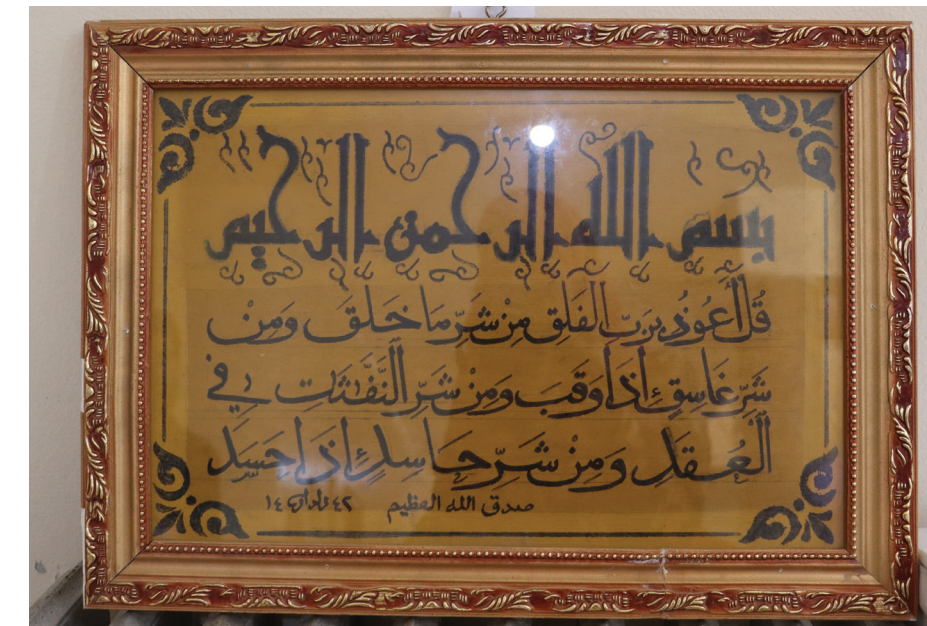 بسم الله الرحمن الرحيم
قُلْ أَعُوذُ بِرَبِّ الفَلَقِ مِنْ شَرِّ مَا خَلَقَ وَمِنْ
شَرِّ غَاسِقٍ إِذَا وَقَبَ وَمِنْ شَرِّ النَّفَّٰثَٰتِ فِي
الْعُقَدِ وَمِنْ شَرِّ حَاسِدٍ إِذَا حَسَدَ
صدق الله العظيم